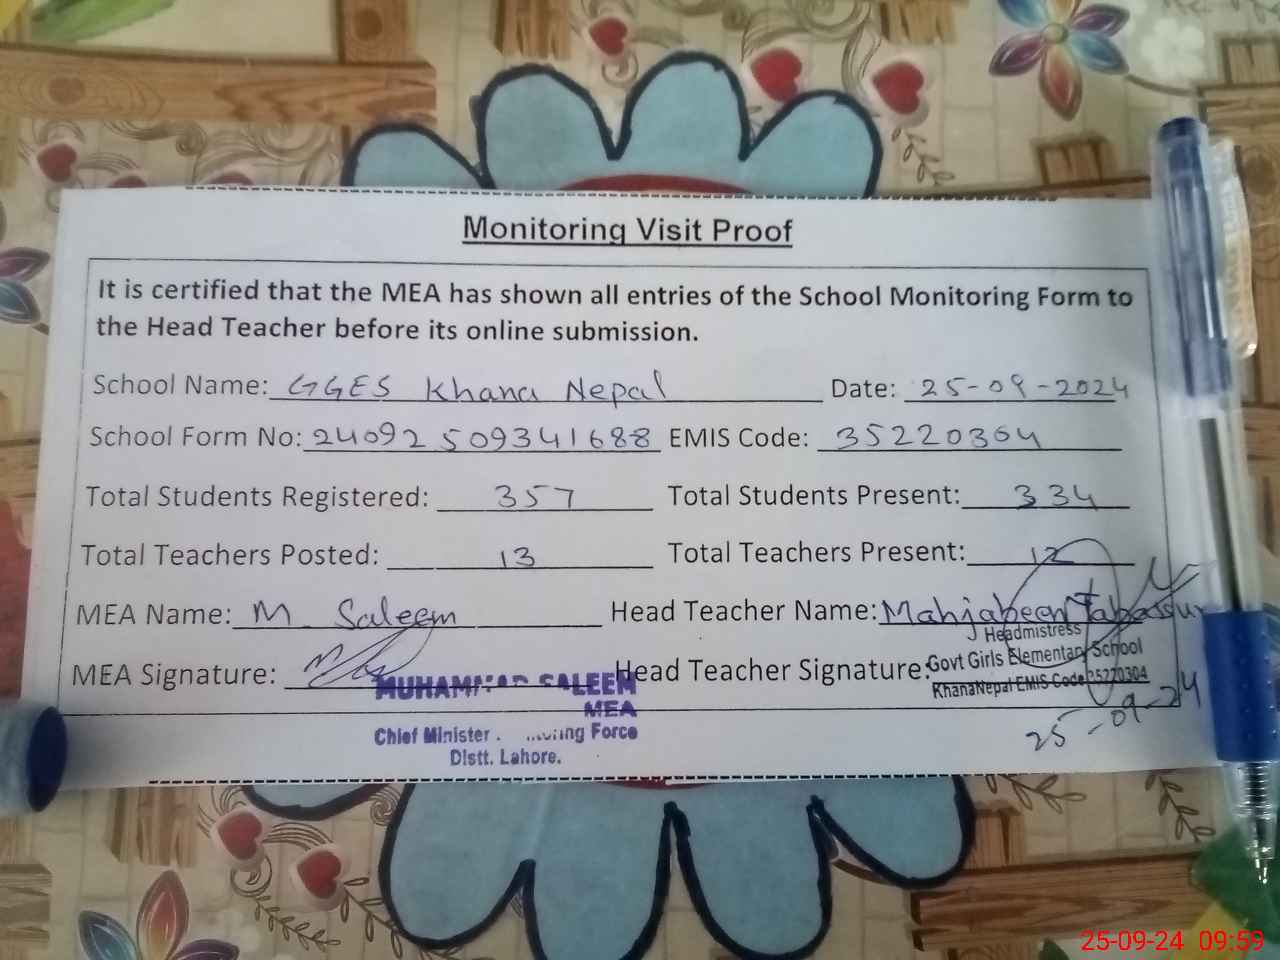 Monitoring Visit Proof
It is certified that the MEA has shown all entries of the School Monitoring Form to
the Head Teacher before its online submission.
School Name: GGES Khana Nepal Date: 25-09-2024
School Form No: 24092509341688 EMIS Code: 35220304
Total Students Registered: 357 Total Students Present: 334
Total Teachers Posted: 13 Total Teachers Present: 12
MEA Name: M. Saleem Head Teacher Name: Mahjabeen Tabassum
Headmistress
MEA Signature: Head Teacher Signature: Govt Girls Elementary School
KhanaNepal EMIS Code 35220304
MUHAMMAD SALEEM
MEA
25-09-24
Chief Minister Force
Distt. Lahore.
25-09-24 09:59